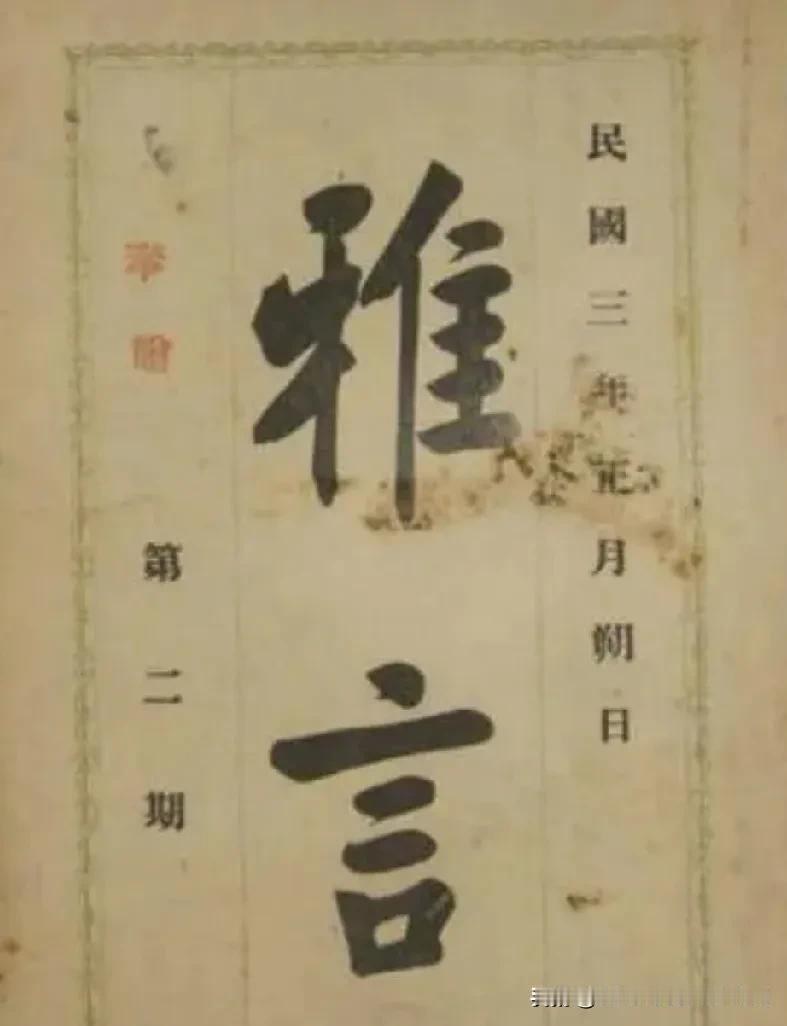 民國三年正月朔日
雅言
第二期